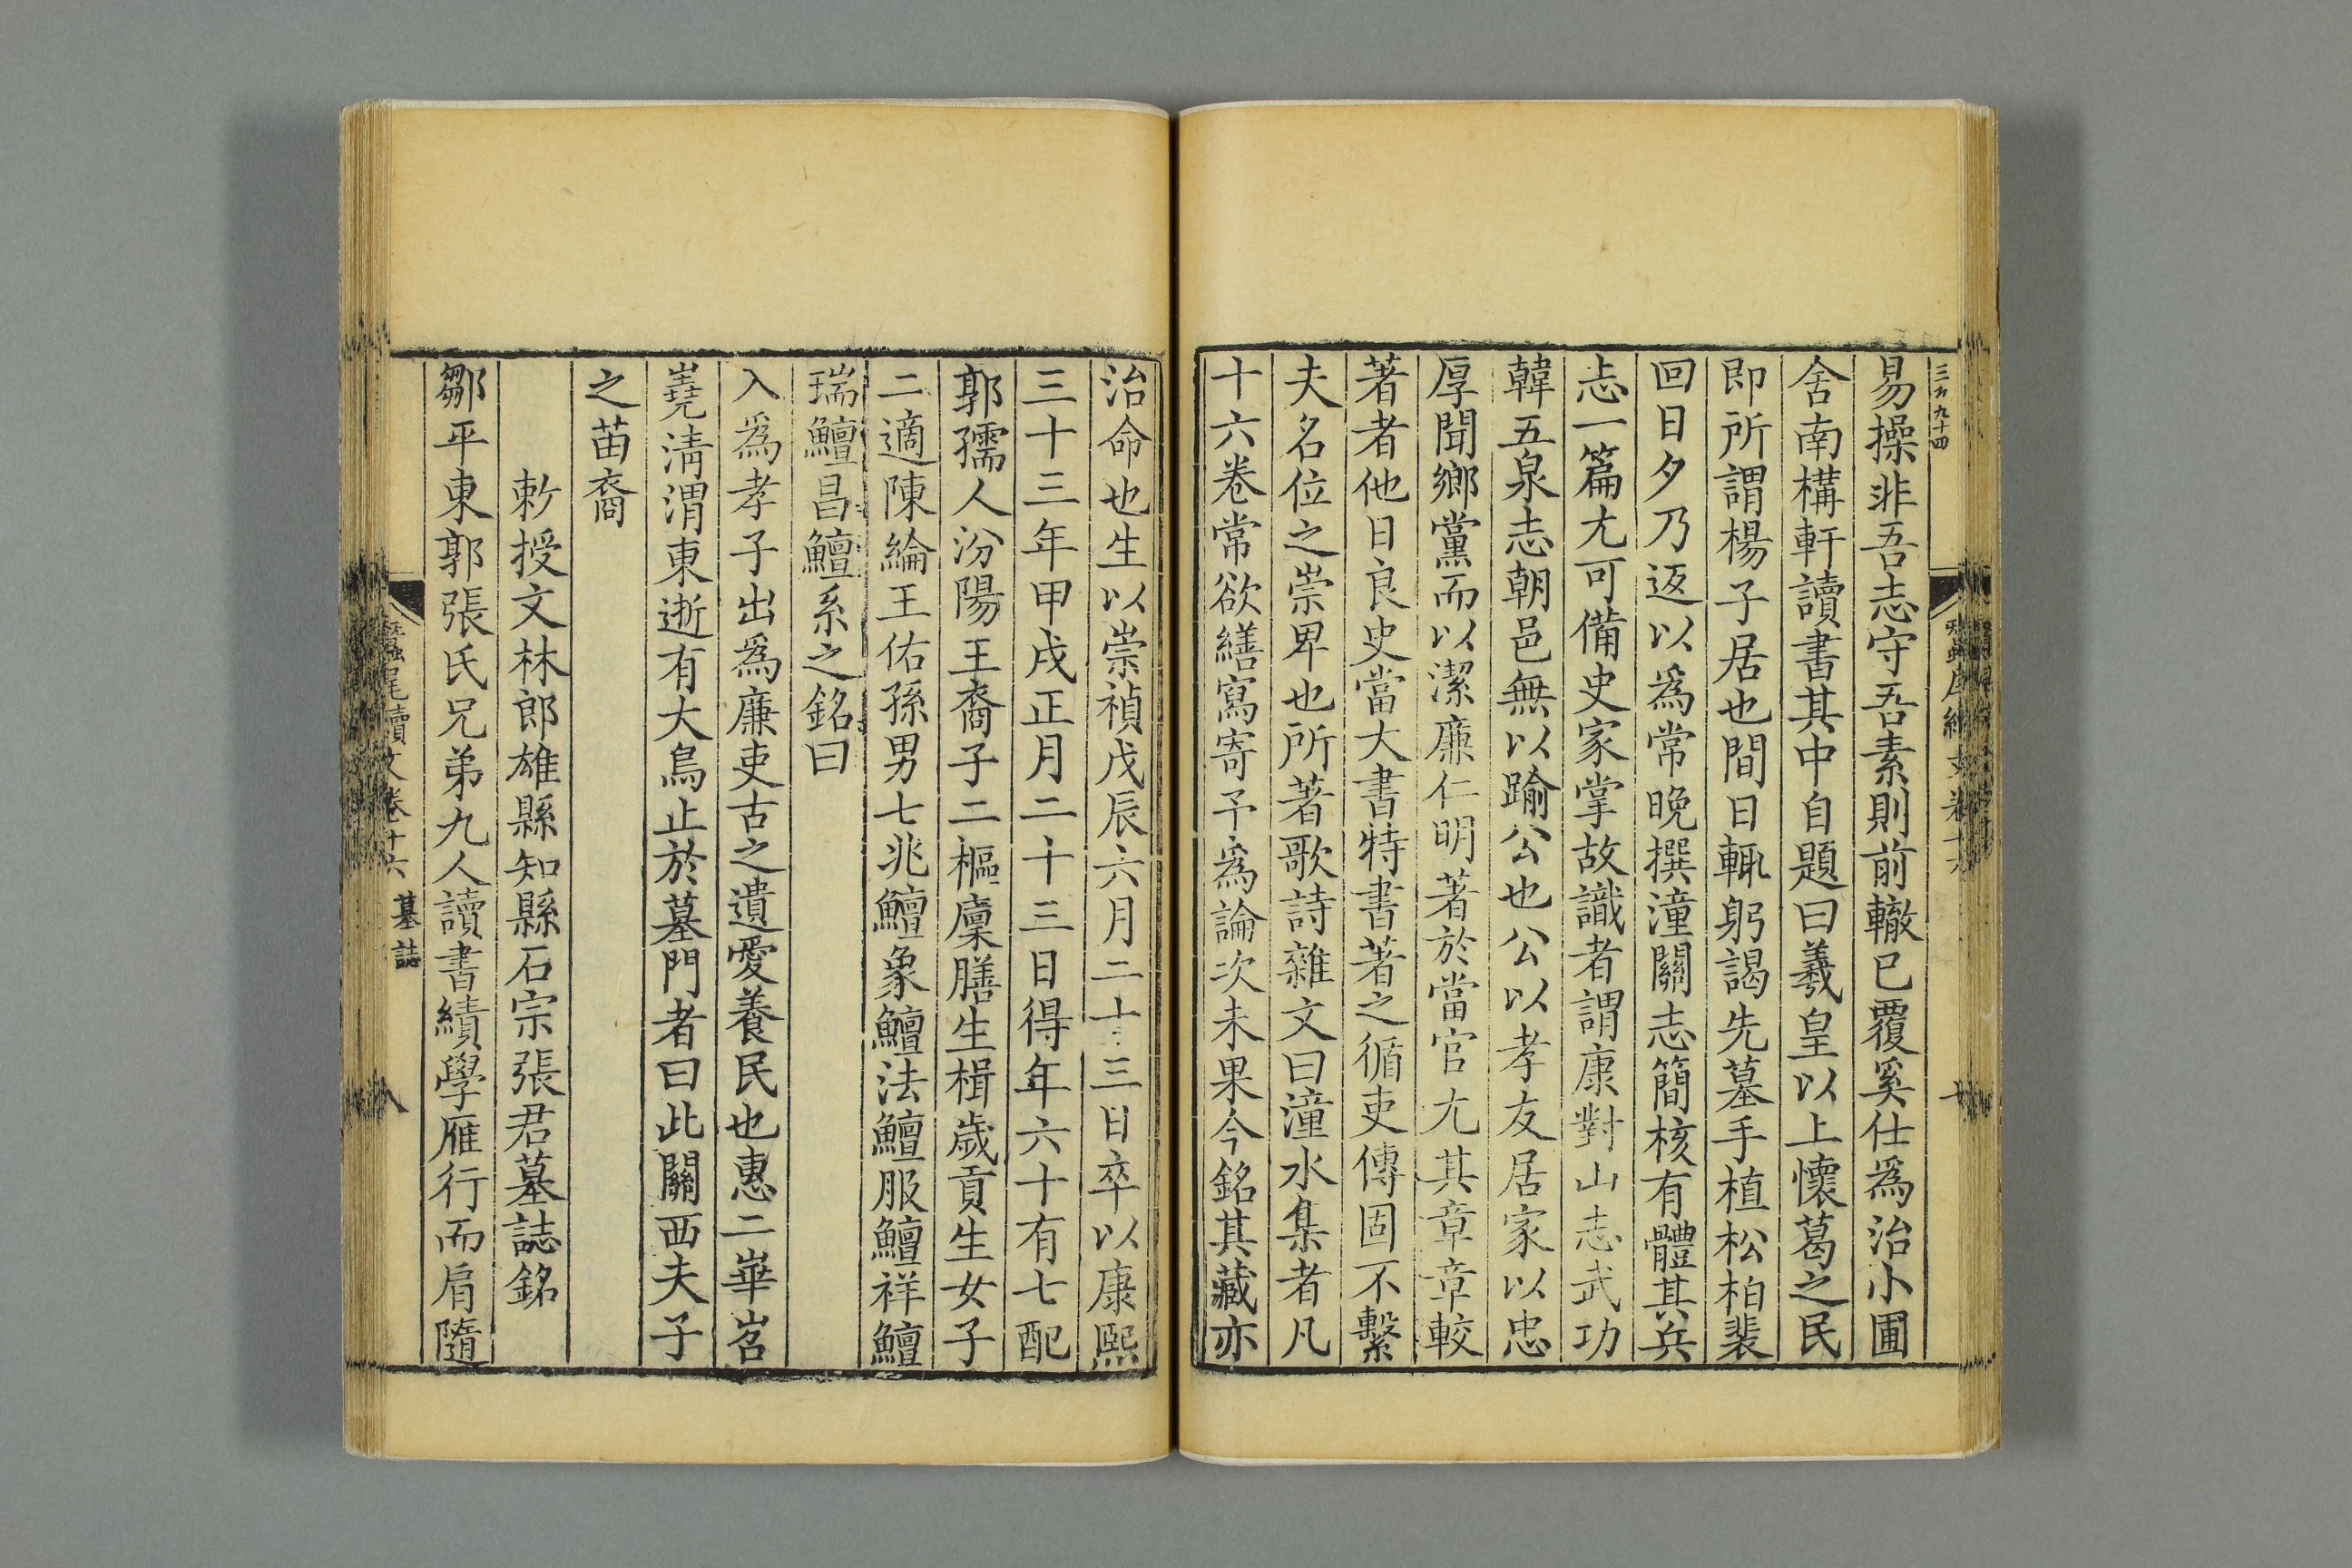 易操非吾志守吾素則前轍已覆奚仕爲治小圃
舍南構軒讀書其中自題曰羲皇以上懷葛之民
即所謂楊子居也間日輒躬謁先墓手植松柏裴
回日夕乃返以爲常晚撰潼關志簡核有體其兵
志一篇尤可備史家掌故識者謂康對山志武功
韓五泉志朝邑無以踰公也公以孝友居家以忠
厚聞鄉黨而以潔廉仁明著於當官尤其章章較
著者他日良史當大書特書著之循吏傳固不繫
夫名位之崇卑也所著歌詩雜文曰潼水集者凡
十六卷常欲繕寫寄予爲論次未果今銘其藏亦
治命也生以崇禎戊辰六月二十三日卒以康熙
三十三年甲戌正月二十三日得年六十有七配
郭孺人汾陽王裔子二樞廩膳生楫歲貢生女子
二適陳綸王佑孫男七兆鱣象鱣法鱣服鱣祥鱣
瑞鱣昌鱣系之銘曰
入爲孝子出爲廉吏古之遺愛養民也惠二崋岧
嶤淸渭東逝有大鳥止於墓門者曰此關西夫子
之苗裔
敕授文林郎雄縣知縣石宗張君墓誌銘
鄒平東郭張氏兄弟九人讀書績學雁行而肩隨
蠶尾續文卷十六 墓誌 八